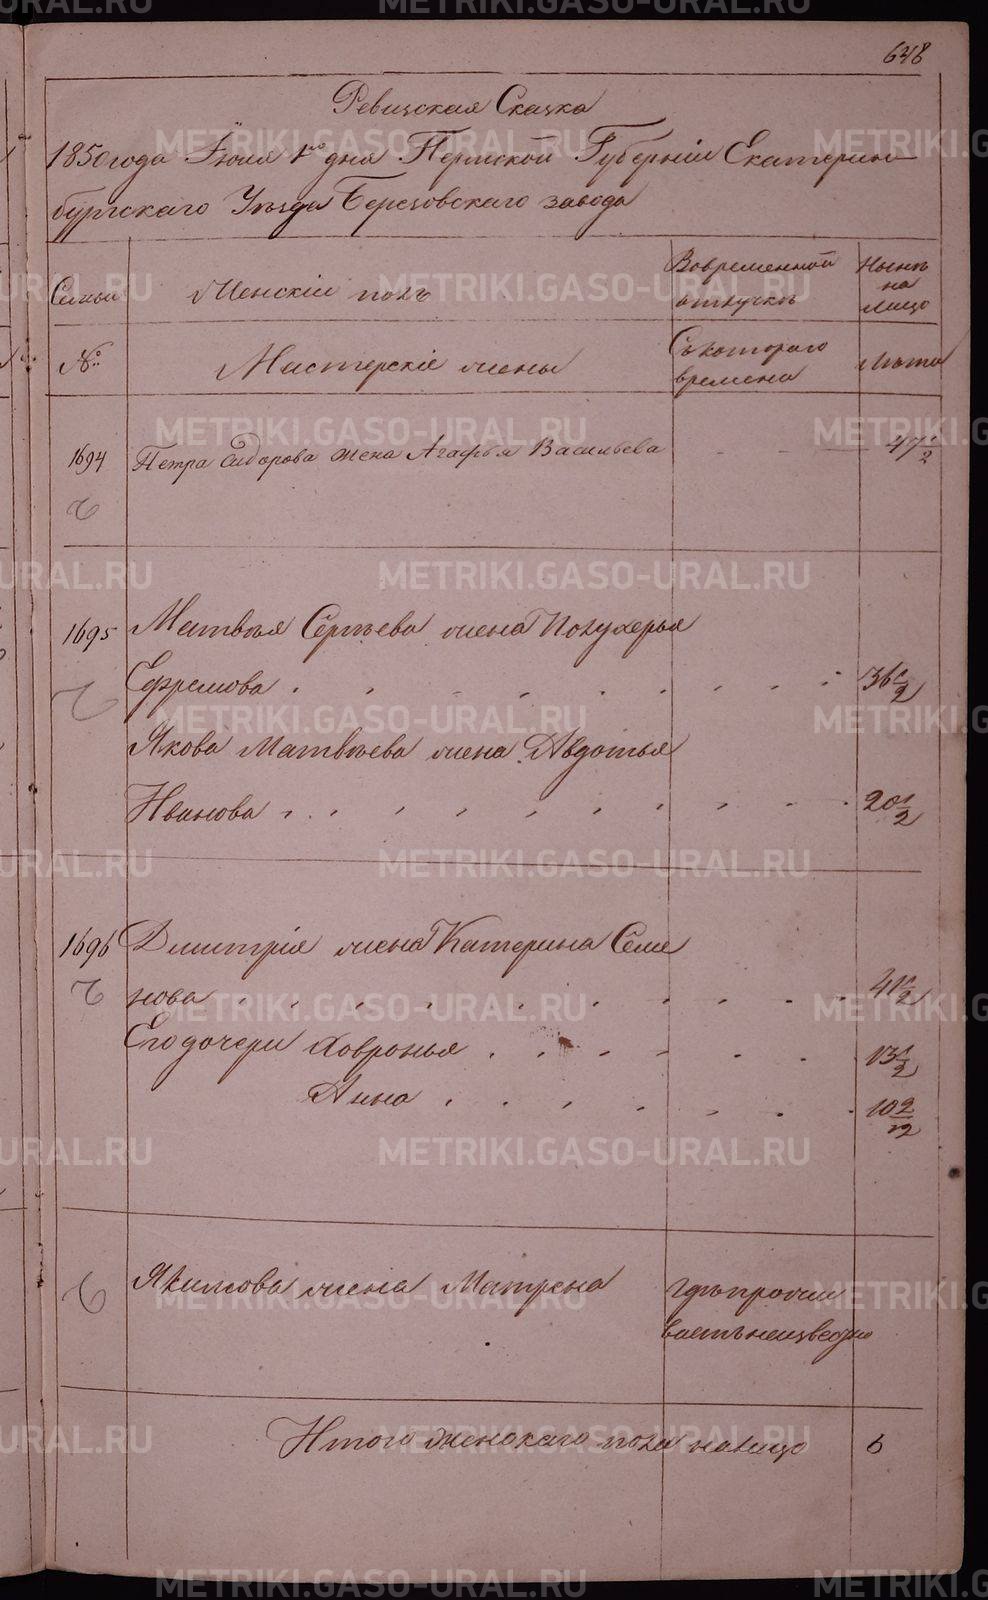 648
Ревизская Сказка
1850 года Іюля 1го дня Пермской Губерніи Екатерин
бургскаго Уѣзда Березовскаго завода
Семьи
Женскій полъ
Вовременной
отлучкѣ
Нынѣ
на
лицо
№
Мастерскіе жены
Съ котораго
времени
Лѣта
1694 Петра Сидорова жена Агафья Васильева - - 47 1/2
1695 Матвѣя Сергѣева жена Полухерья
Ефремова 36 1/2
Якова Матвѣева жена Авдотья
Иванова 20 1/2
1696 Дмитрія жена Катерина Семе
нова 41 1/2
Его дочери Ховронья 13 1/2
Анна 10 2/12
Якимова жена Матрена гдѣ прожи
ваетъ неизвестно
Итого женскаго пола налицо 6
METRIKI.GASO-URAL.RU